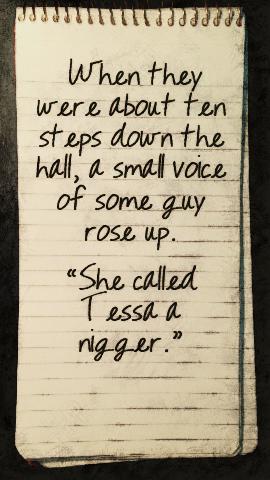 When they
were about ten
steps down the
hall, a small voice
of some guy
rose up.
"She called
Tessa a
nigger."